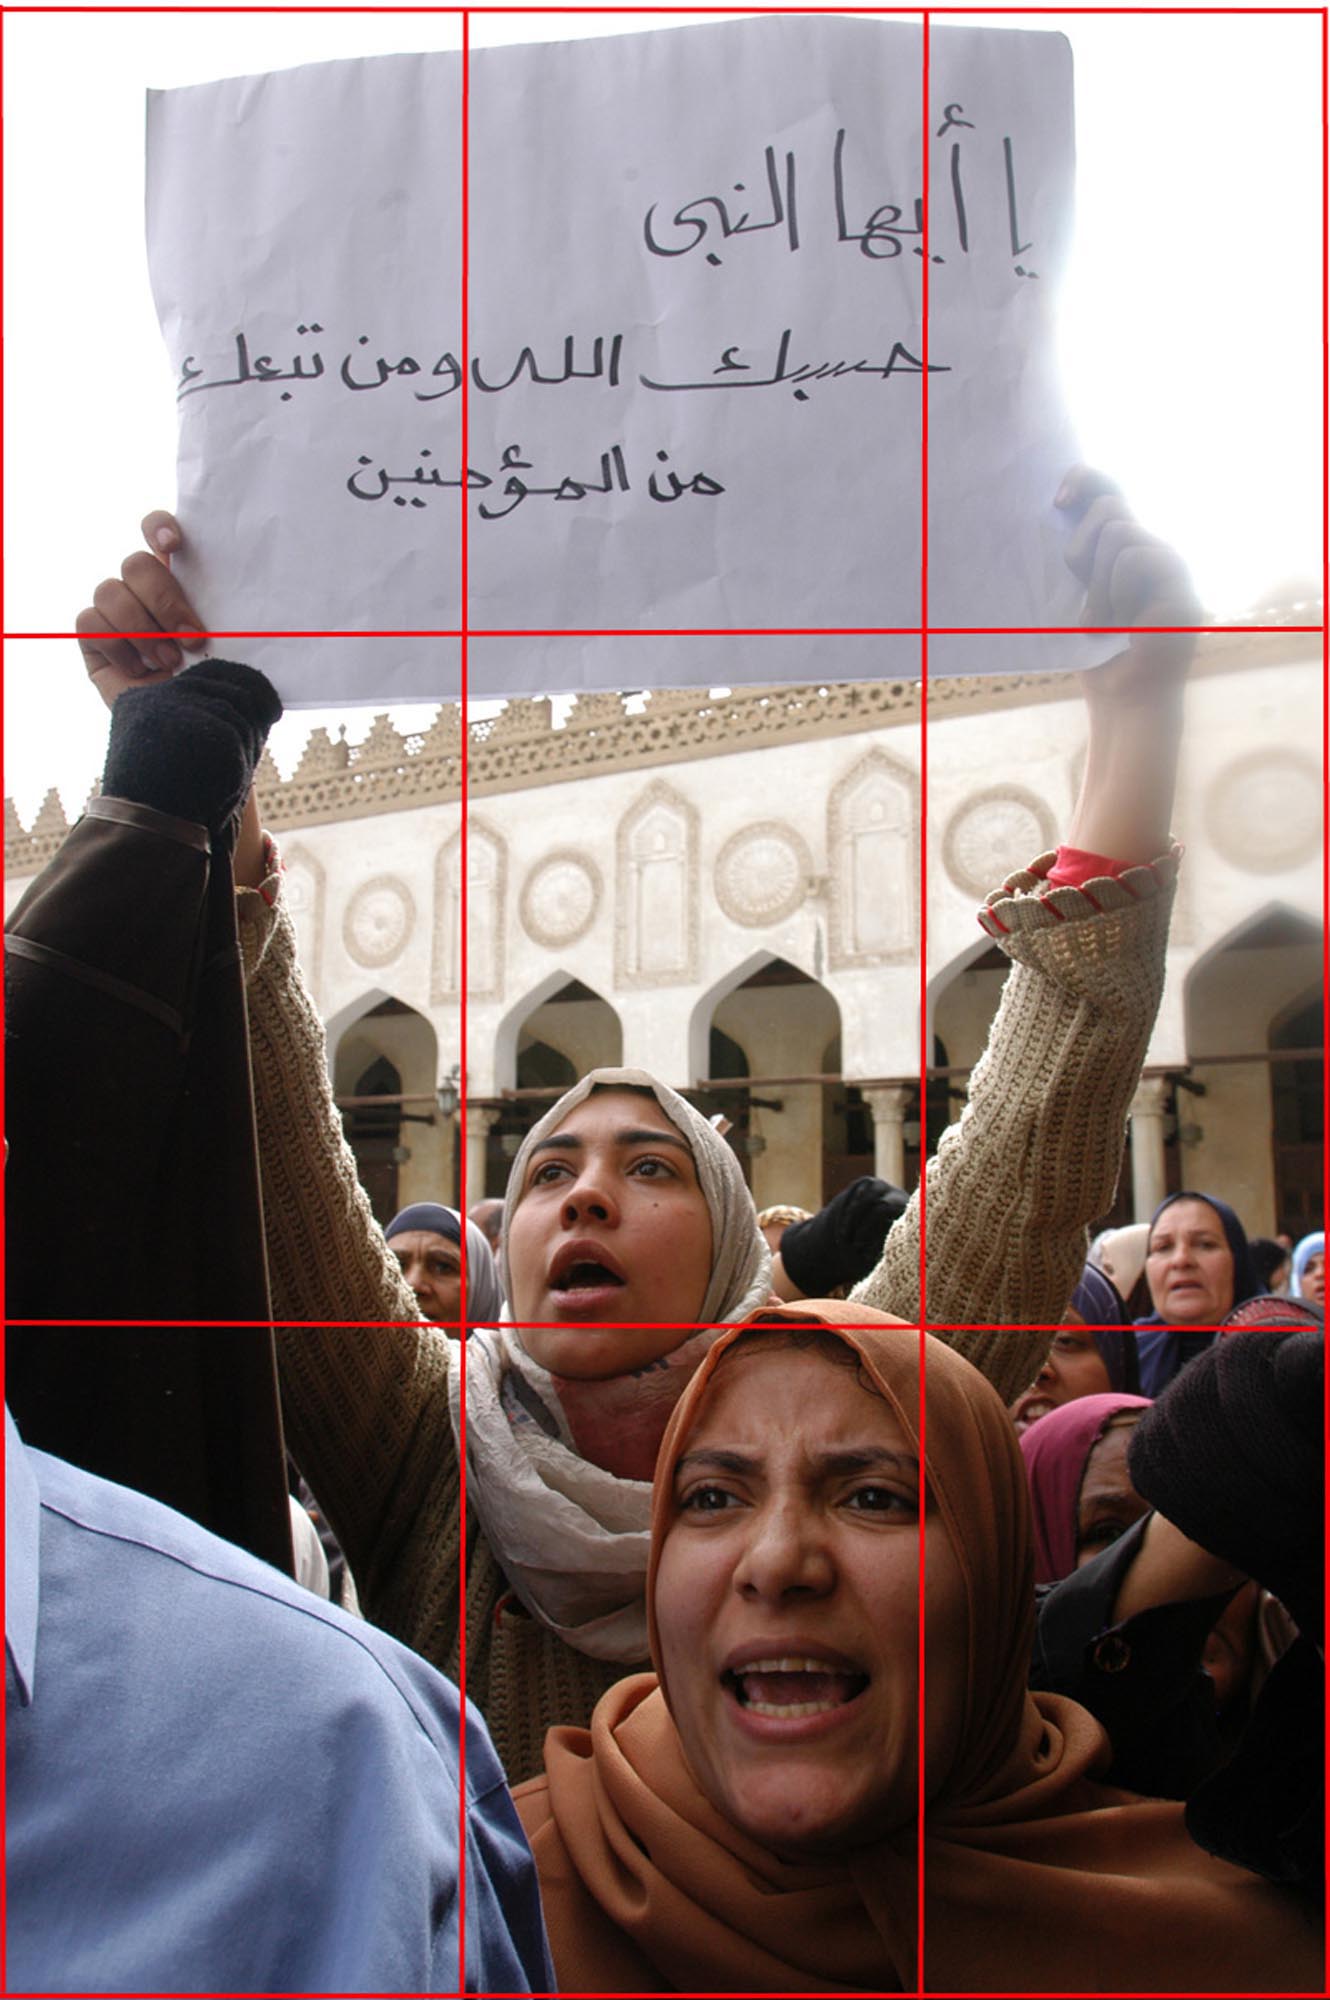 يا أيها النبى
حسبك الله ومن تبعك
من المؤمنين